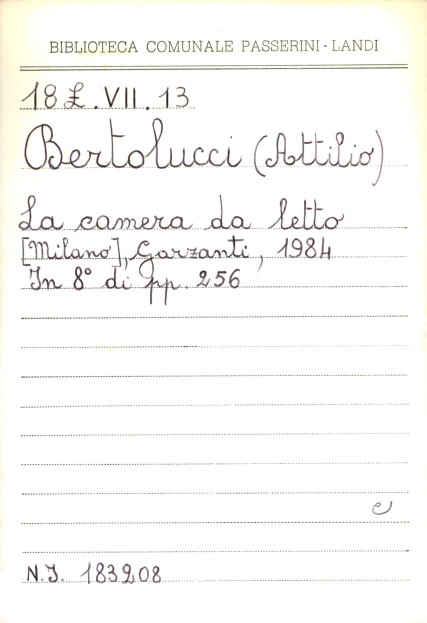 BIBLIOTECA COMUNALE PASSERINI - LANDI
18 Ł. VII. 13
Bertolucci (Attilio)
La camera da letto
[Milano], Garzanti, 1984
In 8° di pp. 256
e
N.I. 183208